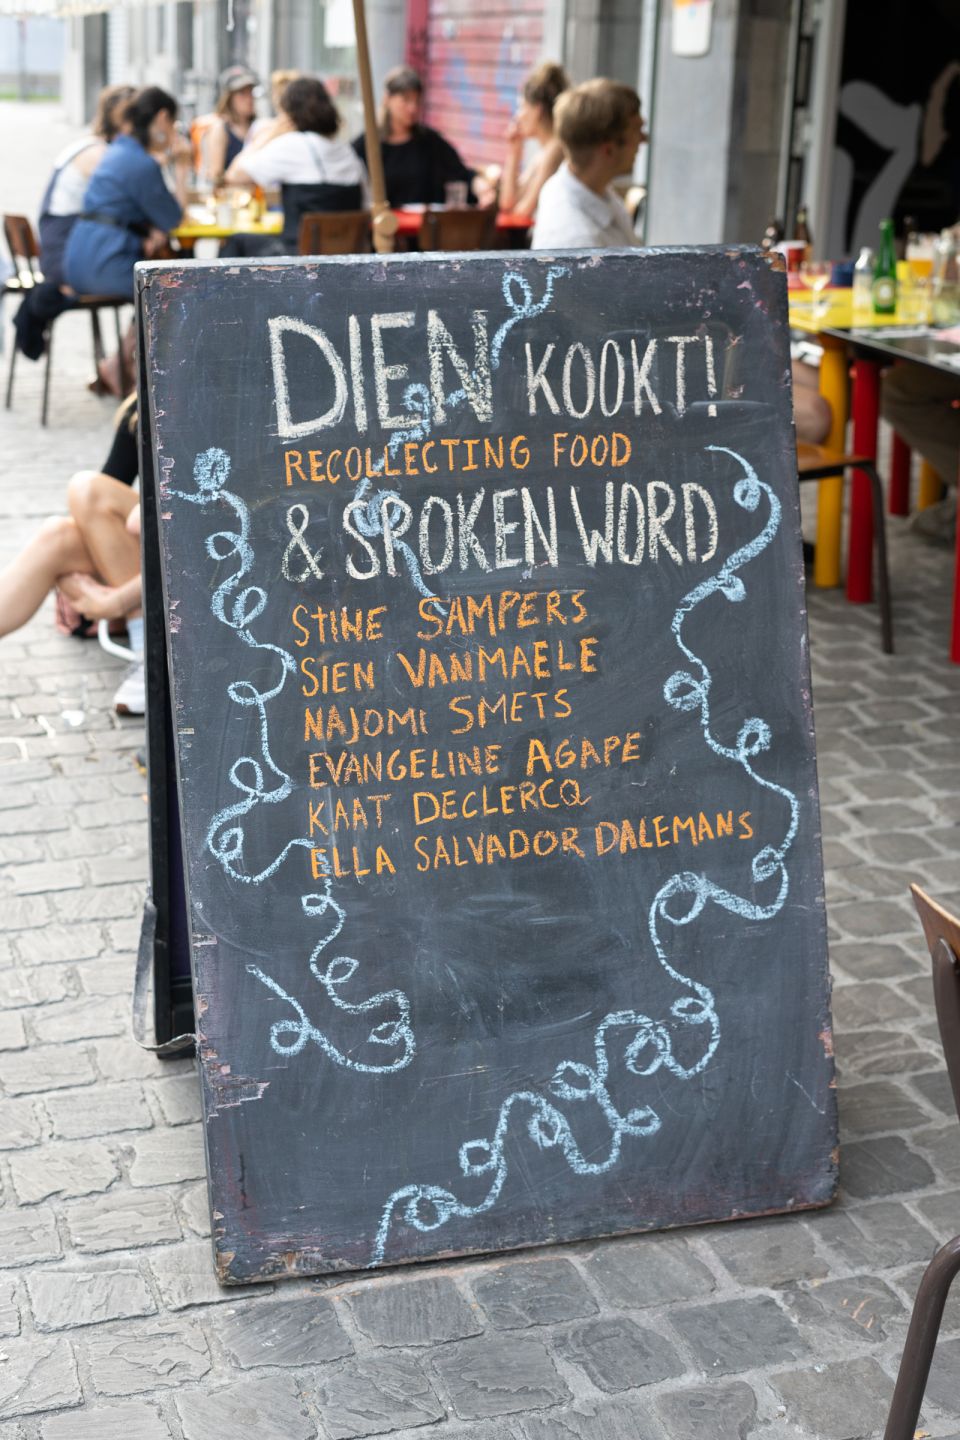 DIEN KOOKT!
RECOLLECTING FOOD
& SPOKEN WORD
STINE SAMPERS
SIEN VANMAELE
NAJOMI SMETS
EVANGELINE AGAPE
KAAT DECLERCQ
ELLA SALVADOR DALEMANS